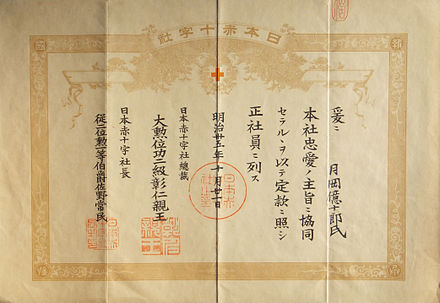 日本赤十字社
月岡億十郎氏
爰ニ
本社忠愛ノ主旨ニ協同
セラルヽヲ以テ定款ニ照シ
正社員ニ列ス
明治廿五年十一月廿一日
日本赤十字社總裁
大勲位功二級彰仁親王
日本赤十字社長
從二位勲一等伯爵佐野常民